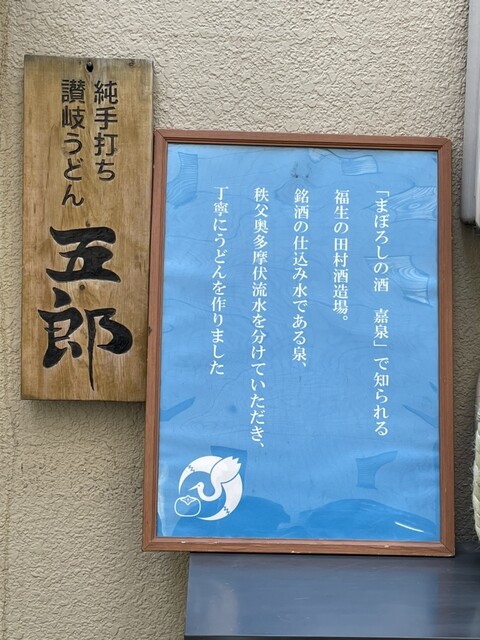 純手打ち
讃岐うどん
五郎
「まぼろしの酒　嘉泉」で知られる
福生の田村酒造場。
銘酒の仕込み水である泉、
秩父奥多摩伏流水を分けていただき、
丁寧にうどんを作りました